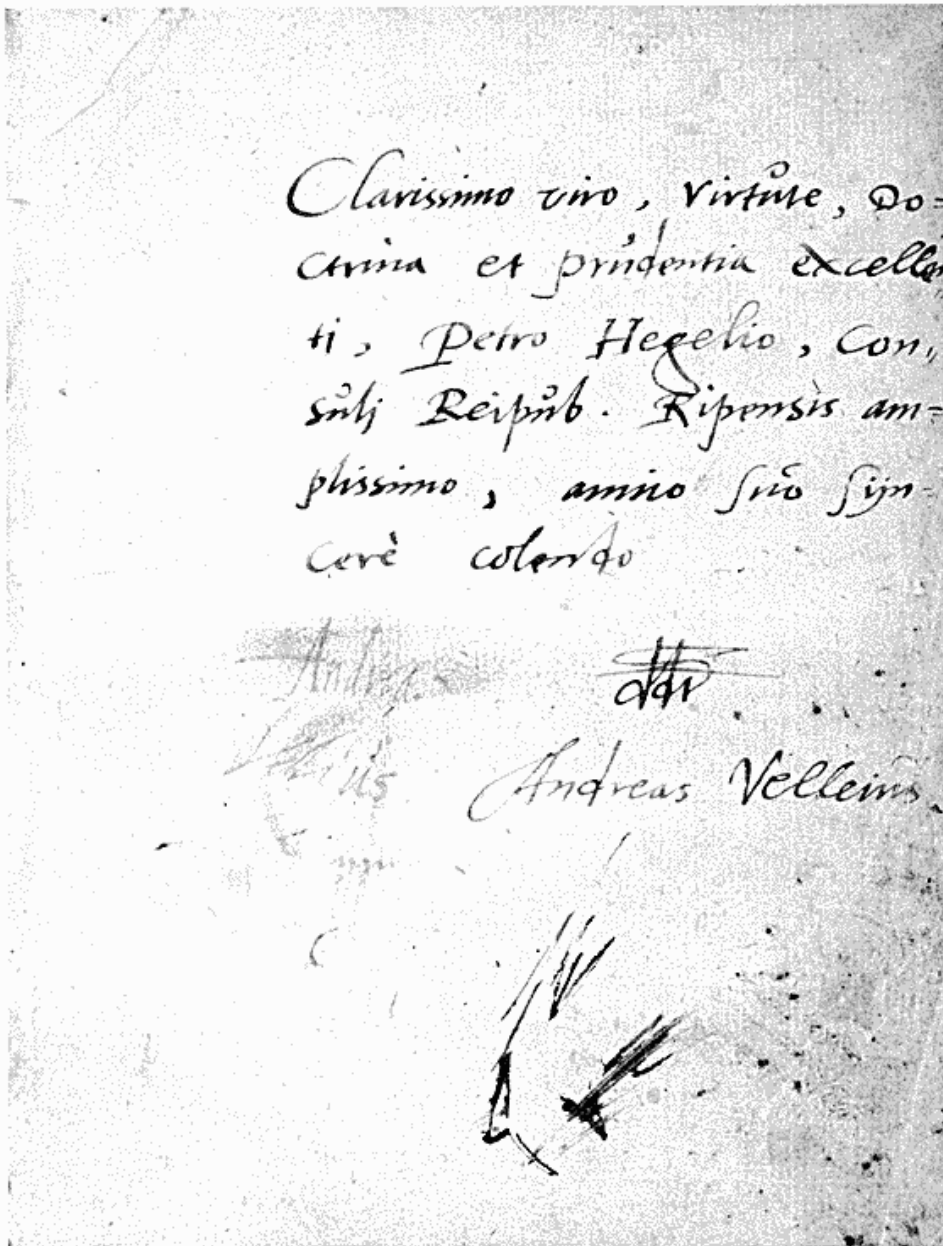 Clarissimo viro, Virtute, Do=
ctrina et prudentia excellen
ti, Petro Hegelio, Con„
sulj Reipub. Ripensis am=
plissimo, amico suo syn-
cerè colendo
ddr
Andreas
Andreas Velleius